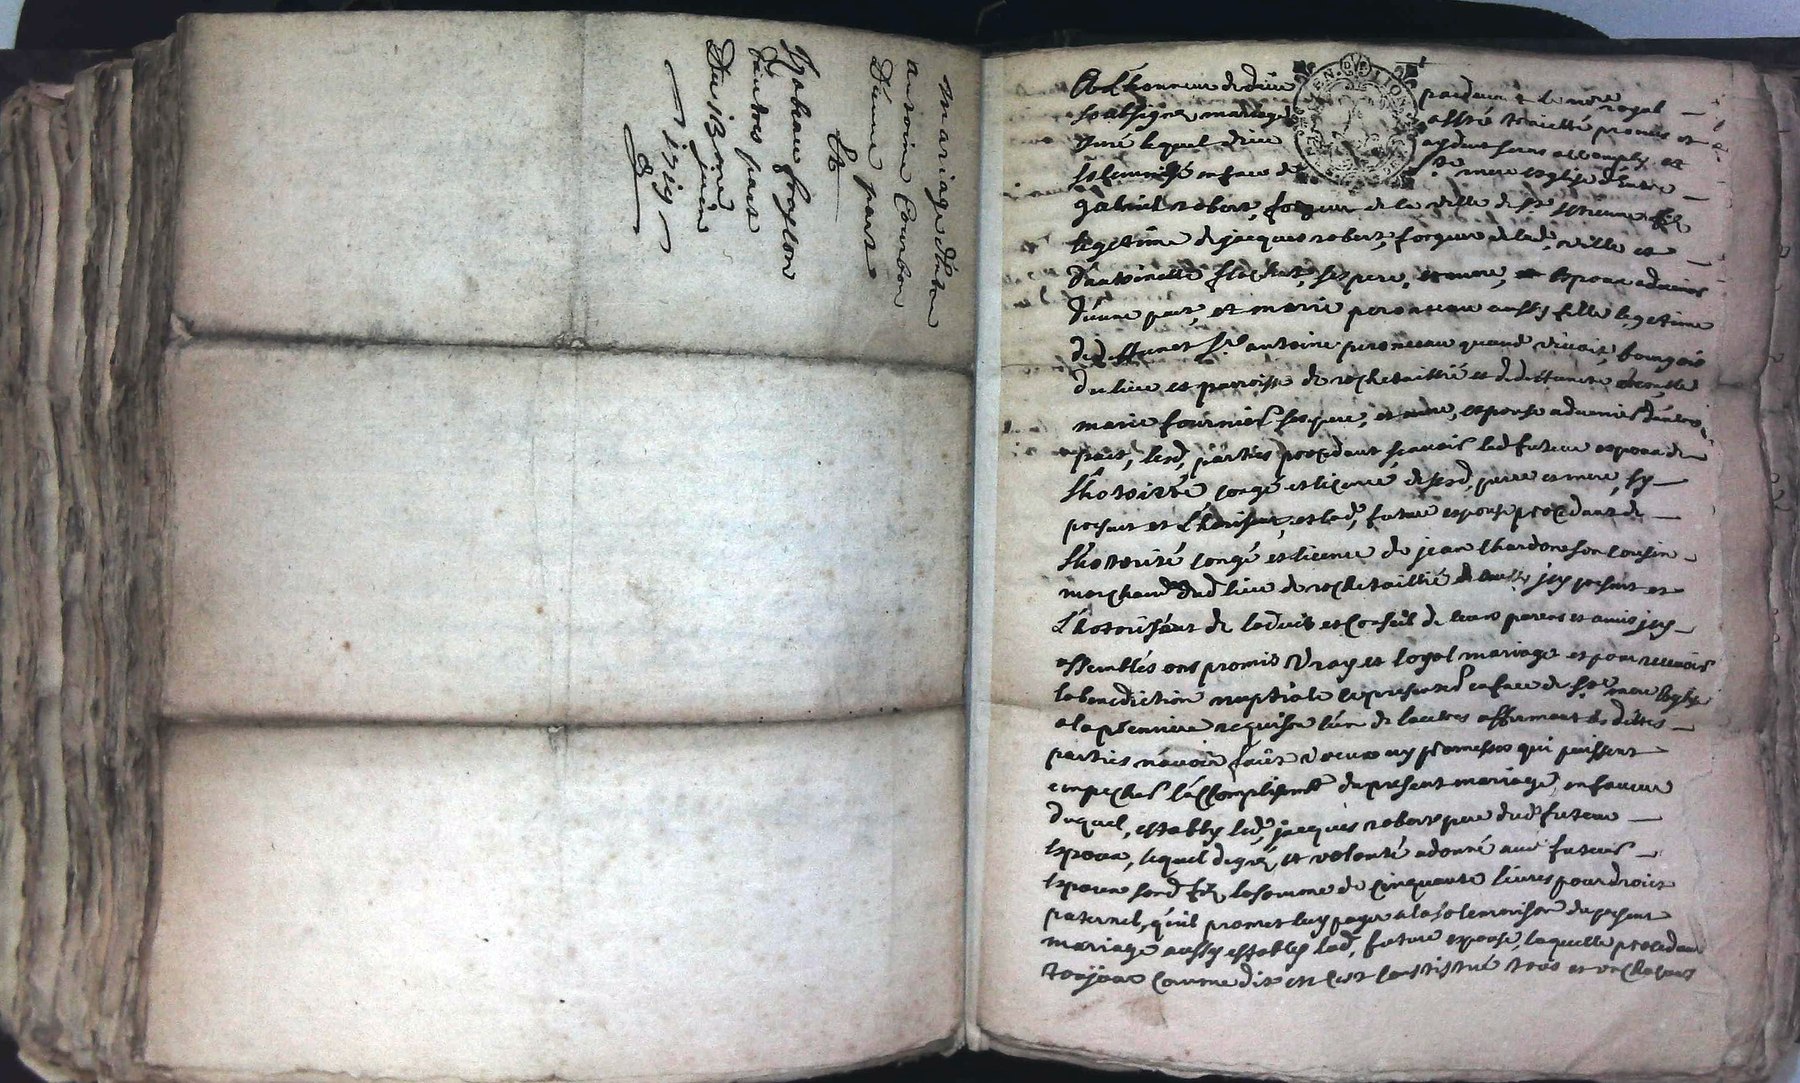 mariage d'entre
antoine Courbon
D'une part
Et
Ysabeau fayolon
D'autres part
Du 13me juin
1715
A l'honneur de dieu pardevant le nore royal
soubsigné mariage a esté traitté promis et
Juré lequel dieu aydant sera accomply et
solemnisé en face de ste mere esglise d'Entre
gabriel robert, forgeur de la ville de st estienne fils
legitime de jacques robert, forgeur de lad, ville et
d'antoinette flechet, ses pere, et mere, espoux advenir
d'une part, et marie peronneau aussy fille legitime
de deffunct sr antoine peronneau quand vivoit, bourgois
du lieu et parroisse de rochetaillié et de deffuncte
marie fournier ses pere, et mere, espouse advenir d'autre
part, lesd, parties procedant scavoir led futeur espoux de
l'hotorité congé et licence de sesd, pere et mere, jcy
present et L'horisant, et lad, future espouse procedant de
l'hotorité congé et licence de jean Chardon son cousin
marchand dud lieu de rochetaillié aussy jcy present et
L'hotorisant de l'advis et Conseil de leurs parens et amis jcy
assemblés ont promis Vray et loyal mariage et pour recevoir
la benediction nuptiale se presenter en face de ste mere Esglize
a la premiere requise l'un de l'autres affirmant les dittes
parties n'avoir fait voeux ny promesses qui puissent
empecher l'accomplissement du present mariage, en faveur
duquel, estably led, jacques robert pere dud futeur
Espoux, lequel de gré, et volonté a donné aud futeur
Espoux sond fils, la somme de Cinquante livres pour droict
paternel, qu'il promet luy payer a la solemnison du present
mariage aussy establye lad, future espouse, laquelle procedant
toujour comme dit est s'est Constitué tous et un chacuns